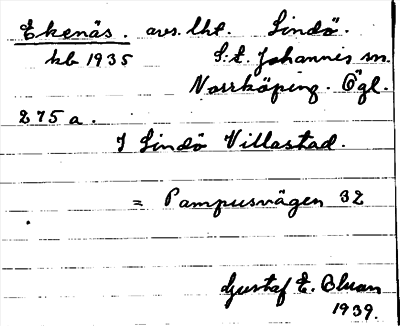 Ekenäs. avs. lht. Lindö.
kb 1935 S:t. Johannis sn.
Norrköping. Ögl.
275 a.
I Lindö Villastad.
= Pampusvägen 32
Gustaf E. Bluan
1939.